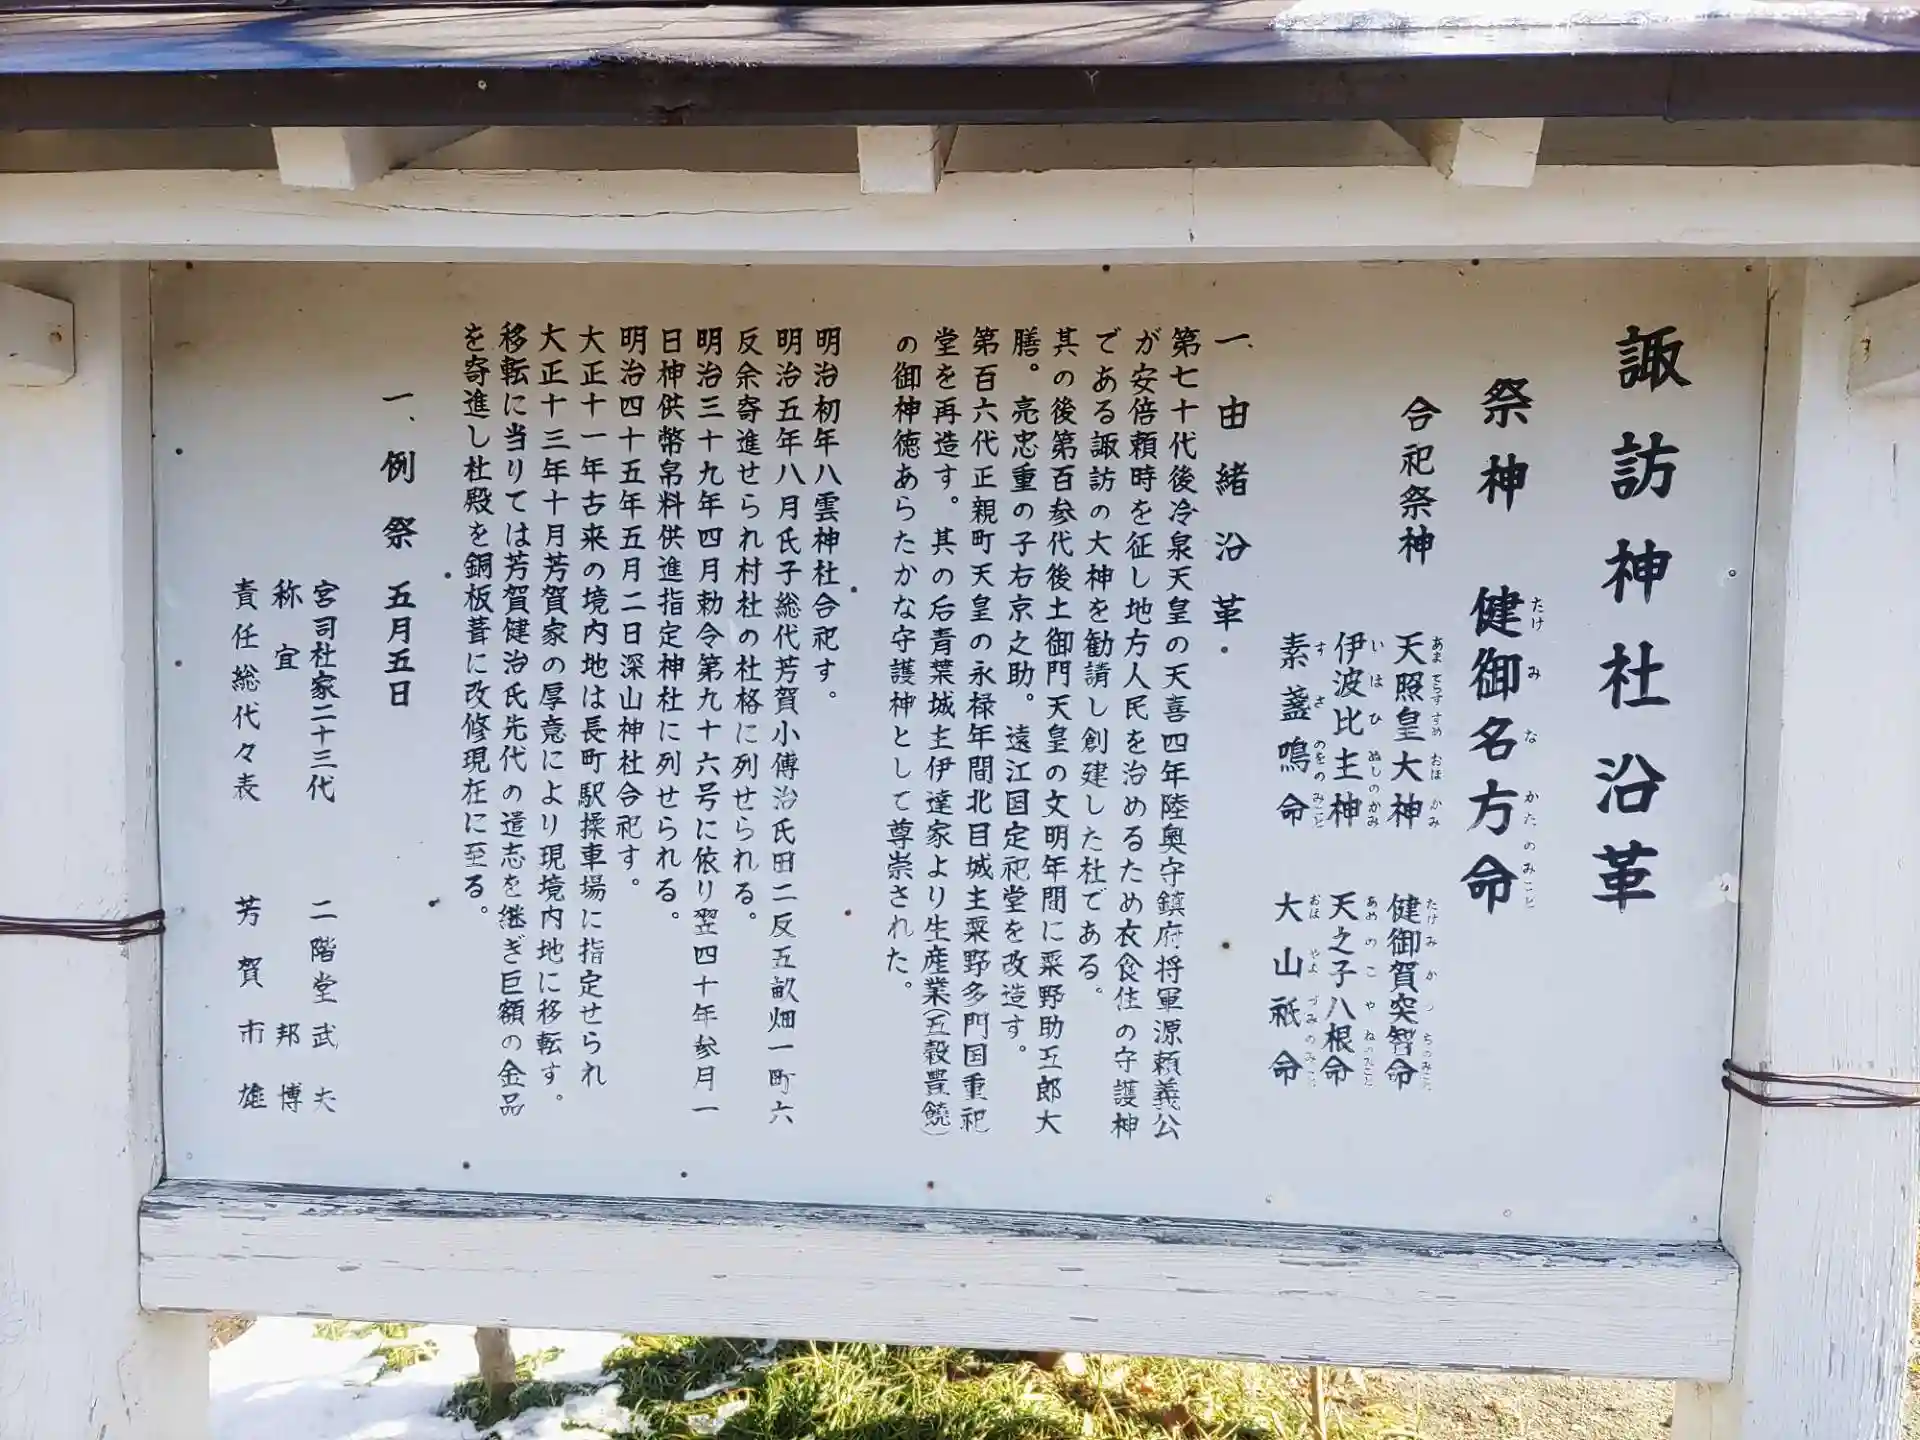 諏訪神社沿革
祭神 健御名方命
たけ み な かた のみこと
合祀祭神
天照皇大神 健御賀突智命
伊波比主神 天之子八根命
素盞鳴命 大山祇命
一、由緒沿革
第七十代後冷泉天皇の天喜四年陸奥守鎮府将軍源頼義公
が安倍頼時を征し地方人民を治めるため衣食住の守護神
である諏訪の大神を勧請し創建した社である。
其の後第百参代後土御門天皇の文明年間に粟野助五郎大
膳。亮忠重の子右京之助。遠江国定祀堂を改造す。
第百六代正親町天皇の永禄年間北目城主粟野多門国重祀
堂を再造す。其の后青葉城主伊達家より生産業(五穀豊饒)
の御神徳あらたかな守護神として尊崇された。
明治初年八雲神社合祀す。
明治五年八月氏子総代芳賀小傳治氏田二反五畝畑一町六
反余寄進せられ村社の社格に列せられる。
明治三十九年四月勅令第九十六号に依り翌四十年参月一
日神供幣帛料供進指定神社に列せられる。
明治四十五年五月二日深山神社合祀す。
大正十一年古来の境内地は長町駅操車場に指定せられ
大正十三年十月芳賀家の厚意により現境内地に移転す。
移転に当りては芳賀健治氏先代の遺志を継ぎ巨額の金品
を寄進し社殿を銅板葺に改修現在に至る。
一、例祭 五月五日
宮司社家二十三代 二階堂武夫
称宜 邦博
責任総代々表 芳賀市雄